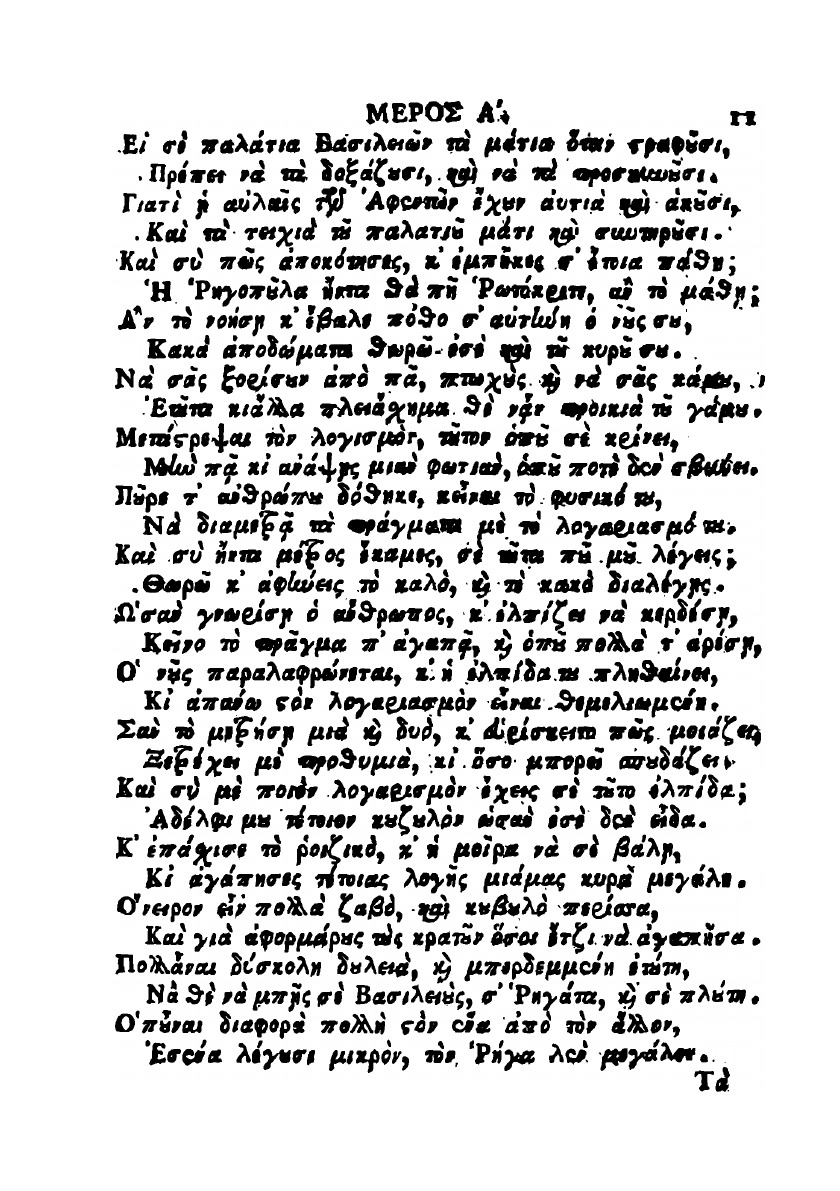 ΜΕΡΟΣ Α΄. 11
Εἰ σὲ παλάτια Βασιλειῶν τὰ μάτια ὅταν στραφοῦσι,
Πρέπει νὰ τὰ δοξάζουσι, καὶ νὰ τὰ προσκυνοῦσι.
Γιατὶ ἡ αὐλαῖς τῶν Ἀφεντῶν ἔχουν αὐτιὰ καὶ ἀκοῦσι,
Καὶ τὰ τειχιὰ τοῦ παλατιοῦ μάτι καὶ συντηροῦσι.
Καὶ σὺ πῶς ἀποκότησες, κ' ἐμπῆκες σ' ἔτοια πάθη;
Ἡ Ῥηγοποῦλα ἤντα θὰ πῇ Ῥωτόκριτε, ἂν τὸ μάθῃ;
Ἂν τὸ νοήσῃ κ' ἔβαλε πόθο σ' αὐτὴν ὁ νοῦς σου,
Κακὰ ἀποδώματα θωρῶ ἐσὲ καὶ τοῦ κυροῦ σου.
Νὰ σᾶς ξορίσουν ἀπὸ πᾶ, πτωχοὺς καὶ νὰ σᾶς κάμου,
Ἐτοῦτα κιἄλλα πλειάχημα θὲ νἆν προικιὰ τοῦ γάμου.
Μετάστρεψαι τὸν λογισμὸν, τοῦτον ὁποῦ σὲ κρίνει,
Μὴν πᾷ κι ἀνάψῃς μιὰν φωτιὰν, ὁποῦ ποτὲ δὲν σβύνει.
Ποῦρε τ' ἀνθρώπου δόθηκε, κεἶναι τὸ φυσικό του,
Νὰ διαμετρᾷ τὰ πράγματα μὲ τὸ λογαριασμό του.
Καὶ σὺ ἤντα μέτρος ἔκαμες, σὲ τοῦτα ποῦ μοῦ λέγεις;
Θωρῶ κ' ἀφίνεις τὸ καλὸ, καὶ τὸ κακὸ διαλέγῃς.
Ὡσὰν γνωρίσῃ ὁ ἄνθρωπος, κ' ἐλπίζει νὰ κερδέσῃ,
Κεῖνο τὸ πρᾶγμα π' ἀγαπᾷ, καὶ ὁποῦ πολλὰ τ' ἀρέσῃ,
Ὁ νοῦς παραλαφρώνεται, κ' ἡ ἐλπίδα του πληθαίνει,
Κι ἀπάνω στὸν λογαριασμὸν εἶναι θεμελιωμένη.
Σὰν τὸ μετρήσῃ μιὰ καὶ δυὸ, κ' εὑρίσκειτο πῶς μοιάζει,
Ξετρέχει μὲ προθυμιὰ, κι ὅσο μπορεῖ σπουδάζει.
Καὶ σὺ μὲ ποιὸν λογαρισμὸν ἔχεις σὲ τοῦτο ἐλπίδα;
Ἀδέλφι μου τέτοιον κουζουλὸν ὡσὰν ἐσὲ δὲν εἶδα.
Κ' ἐπάχισε τὸ ῥοιζικὸ, κ' ἡ μοῖρα νὰ σὲ βάλῃ,
Κι ἀγάπησες τέτοιας λογῆς μιάμας κυρὰ μεγάλη.
Ὄνειρον εἶν πολλὰ ζαβὸ, καὶ κουβουλὸ περίσσα,
Καὶ γιὰ ἀφορμάρους τοὺς κρατοῦν ὅσοι ἔτζι νὰ ἀγαπῆσα.
Πολλἆναι δύσκολη δουλειὰ, καὶ μπερδεμμένη ἐτούτη,
Νὰ θὲ νὰ μπῇς σὲ Βασιλειοὺς, σ' Ῥηγάτα, καὶ σὲ πλούτη.
Ὁποὖναι διαφορὰ πολλὴ στὸν ἕνα ἀπὸ τὸν ἄλλον,
Ἐσένα λέγουσι μικρὸν, τὸν Ῥήγα λὲν μεγάλον.
Τὰ